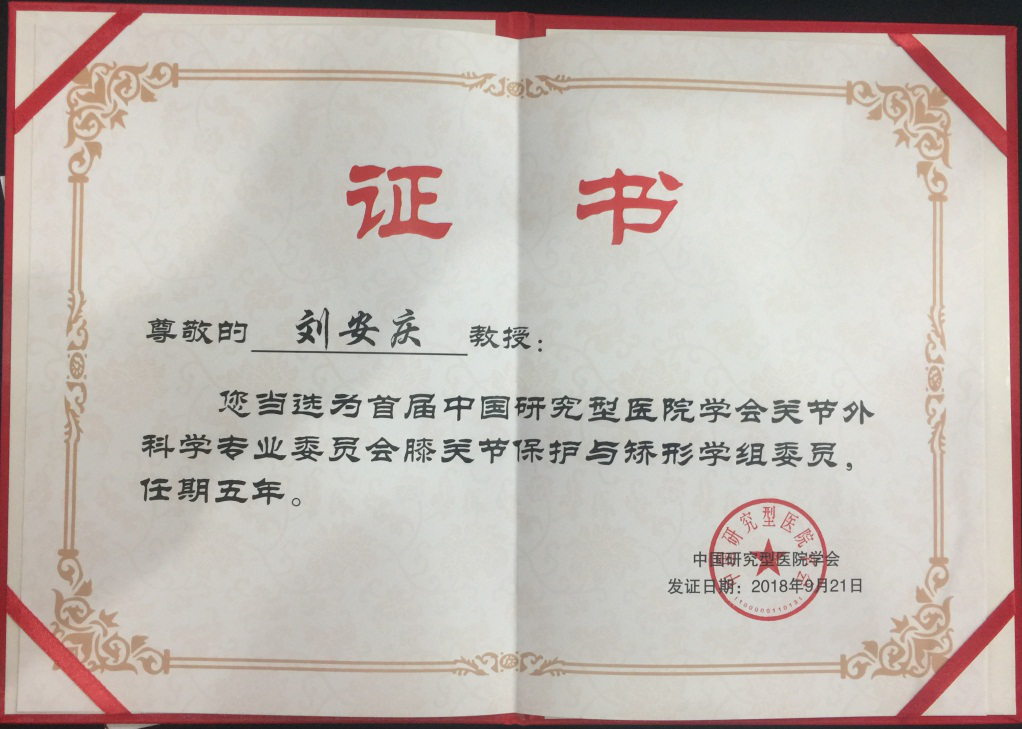 证 书
尊敬的 刘安庆 教授：
您当选为首届中国研究型医院学会关节外
科学专业委员会膝关节保护与矫形学组委员，
任期五年。
中国研究型医院学会
中国研究型医院学会
发证日期：2018年9月21日